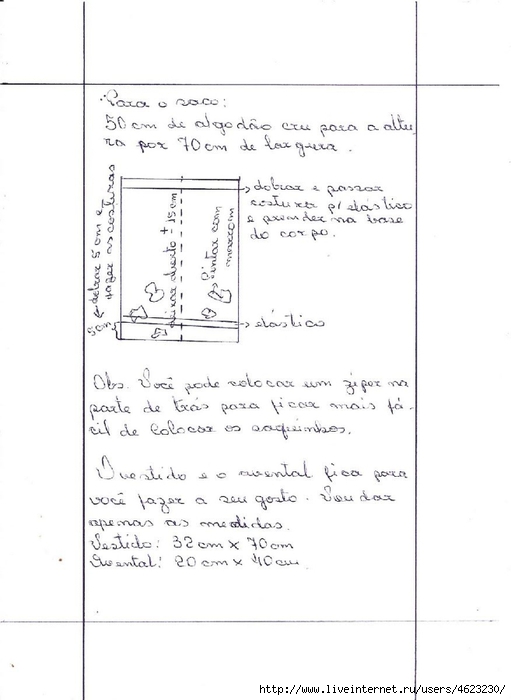 Para o saco:
50 cm de algodão cru para a altu
ra por 70 cm de largura.
dobrar e passar
costurar p/ elástico
e prender na base
do corpo.
dobrar 5 cm e
fazer as costuras
5 cm
deixar aberto ± 15 cm
Pintar com
marrom
elástico
Obs. Você pode colocar um zíper na
parte de trás para ficar mais fá-
cil de colocar os saquinhos.
O vestido e o avental fica para
você fazer a seu gosto. Vou dar
apenas as medidas.
Vestido: 32 cm x 70 cm
Avental: 20 cm x 40 cm
http://www.liveinternet.ru/users/4623230/